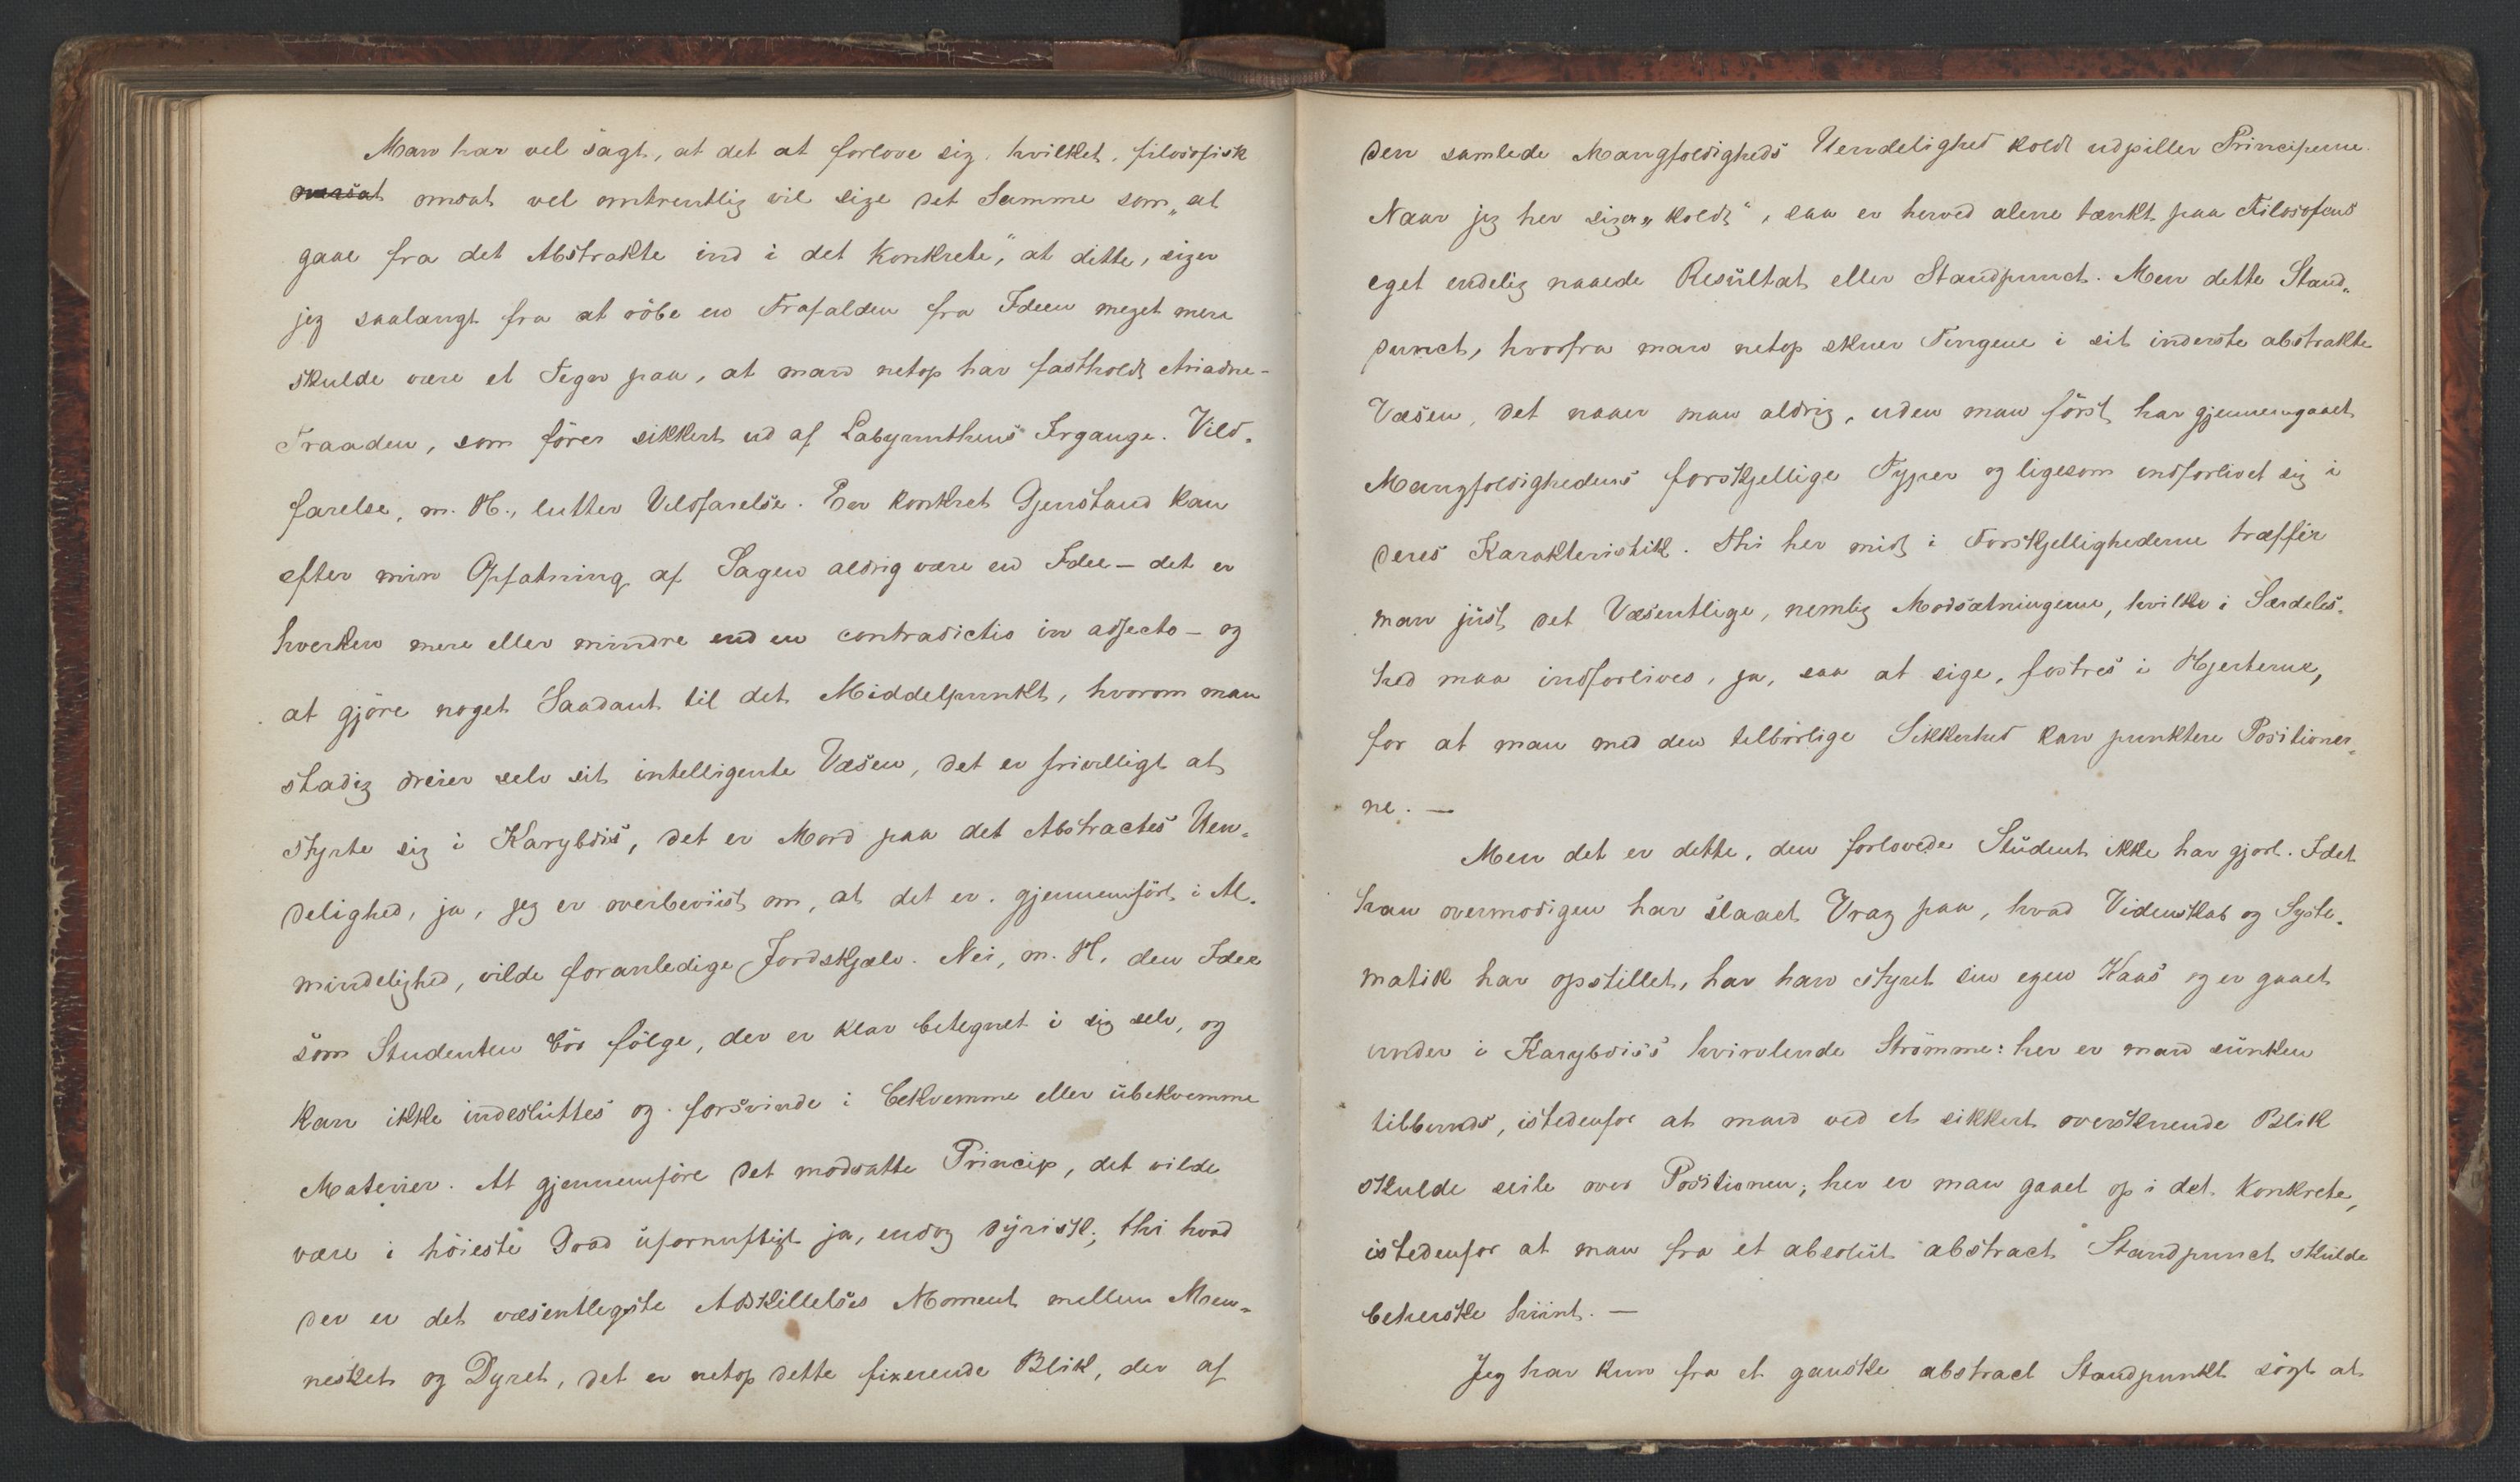 Man har vel sagt, at det at forlove sig, hvilket, filosofisk
oversat omsat vel omtrentlig vil sige det Samme som „at
gaae fra det Abstrakte ind i det Konkrete", at dette, siger
jeg saalangt fra at röbe en Frafalden fra Ideen meget mere
skulde være et Tegn paa, at man netop har fastholdt Ariadne-
Traaden, som förer sikkert ud af Labyrinthens Irgange. Vild-
farelse, m. H., lutter Vildfarelse. En konkret Gjenstand kan
efter min Opfatning af Sagen aldrig være en Idee — det er
hverken mere eller mindre end en contradictio in adjecto — og
at gjöre noget Saadant til det Middelpunkt, hvorom man
stadig dreier selv sit intelligente Væsen, det er frivilligt at
styrte sig i Karybdis, det er Mord paa det Abstractes Uen-
delighed, ja, jeg er overbeviist om, at det er, gjennemfört i Al-
mindelighed, vilde foranledige Jordskjælv. Nei, m. H. den Idee
som Studenten bör fölge, der er klar betegnet i sig selv, og
kan ikke indesluttes og forsvinde i bekvemme eller ubekvemme
Materier. At gjennemföre det modsatte Princip, det vilde
være i höieste Grad ufornuftigt ja, endog dyrisk; thi hvad
der er det væsentligste Adskillelses Moment mellem Men-
nesket og Dyret, det er netop dette fixerende Blik, der af
den samlede Mangfoldigheds Uendelighed koldt udpiller Principerne.
Naar jeg her siger „koldt", saa er herved alene tænkt paa Filosofens
eget endelig naaede Resultat eller Standpunct. Men dette Stand-
punct, hvorfra man netop skuer Tingene i sit inderste abstrakte
Væsen, det naaer man aldrig, uden man först har gjennemgaaet
Mangfoldighedens forskjellige Typer og ligesom indforlivet sig i
deres Karakteristik. Thi her midt i Forskjellighederne træffer
man just det Væsentlige, nemlig Modsætningerne, hvilke i Særdeles-
hed maa indforlives, ja, saa at sige, fostres i Hjerterne,
for at man med den tilbörlige Sikkerhed kan punktere Positioner-
ne. —
Men det er dette, den forlovede Student ikke har gjort. Idet
han overmodigen har slaaet Vrag paa, hvad Videnskab og Syste-
matik har opstillet, har han styret sin egen Kaas og er gaaet
under i Karybdis's hvirvlende Strömme: her er man sunken
tilbunds, istedenfor at man ved et sikkert overskuende Blik
skulde seile over Positionen; her er man gaaet op i det Konkrete,
istedenfor at man fra et absolut abstract Standpunct skulde
beherske hiint. —
Jeg har kun fra et ganske abstract Standpunkt sögt at